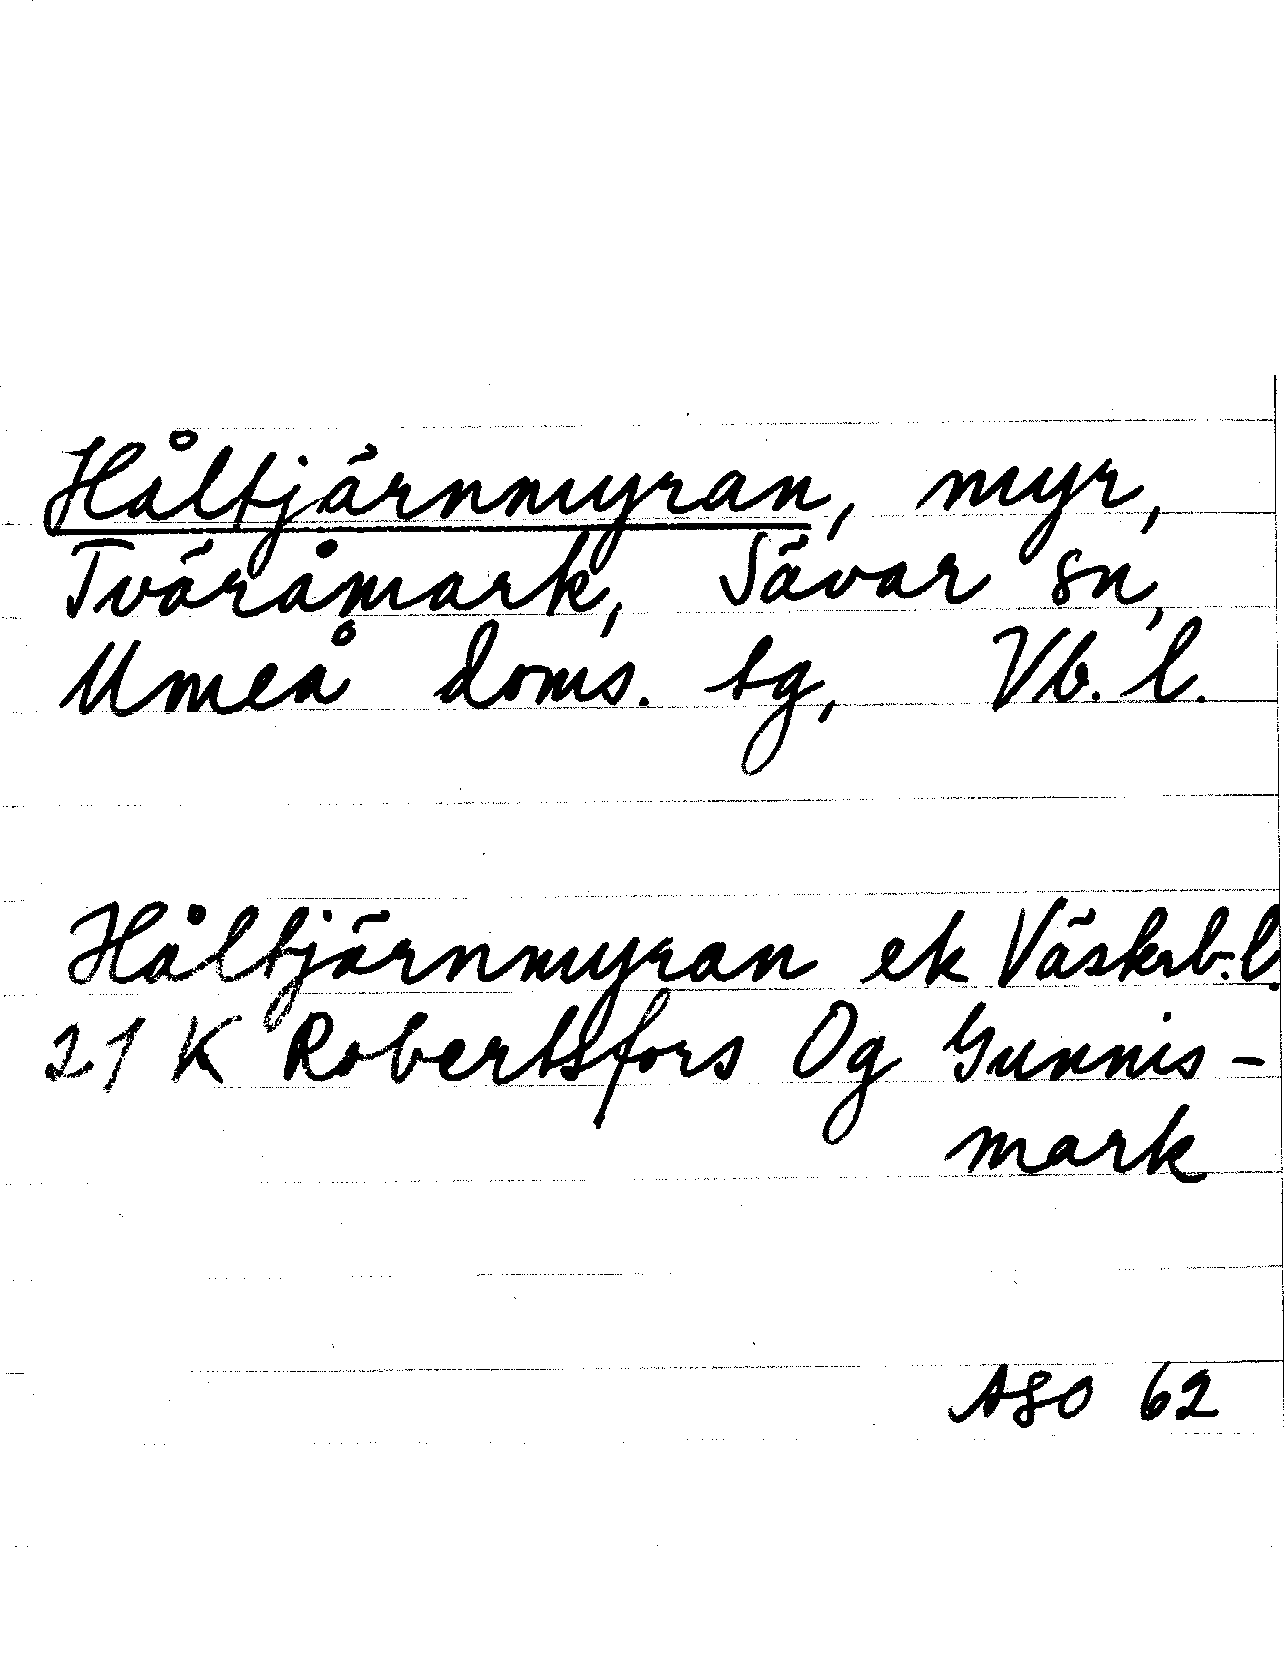 Håltjärnmyran, myr,
Tväråmark, Sävar sn,
Umeå doms. tg, Vb. l.
Håltjärnmyran ek Västerb. l.
21 K Robertsfors Og Gunnis-
mark
ASO 62